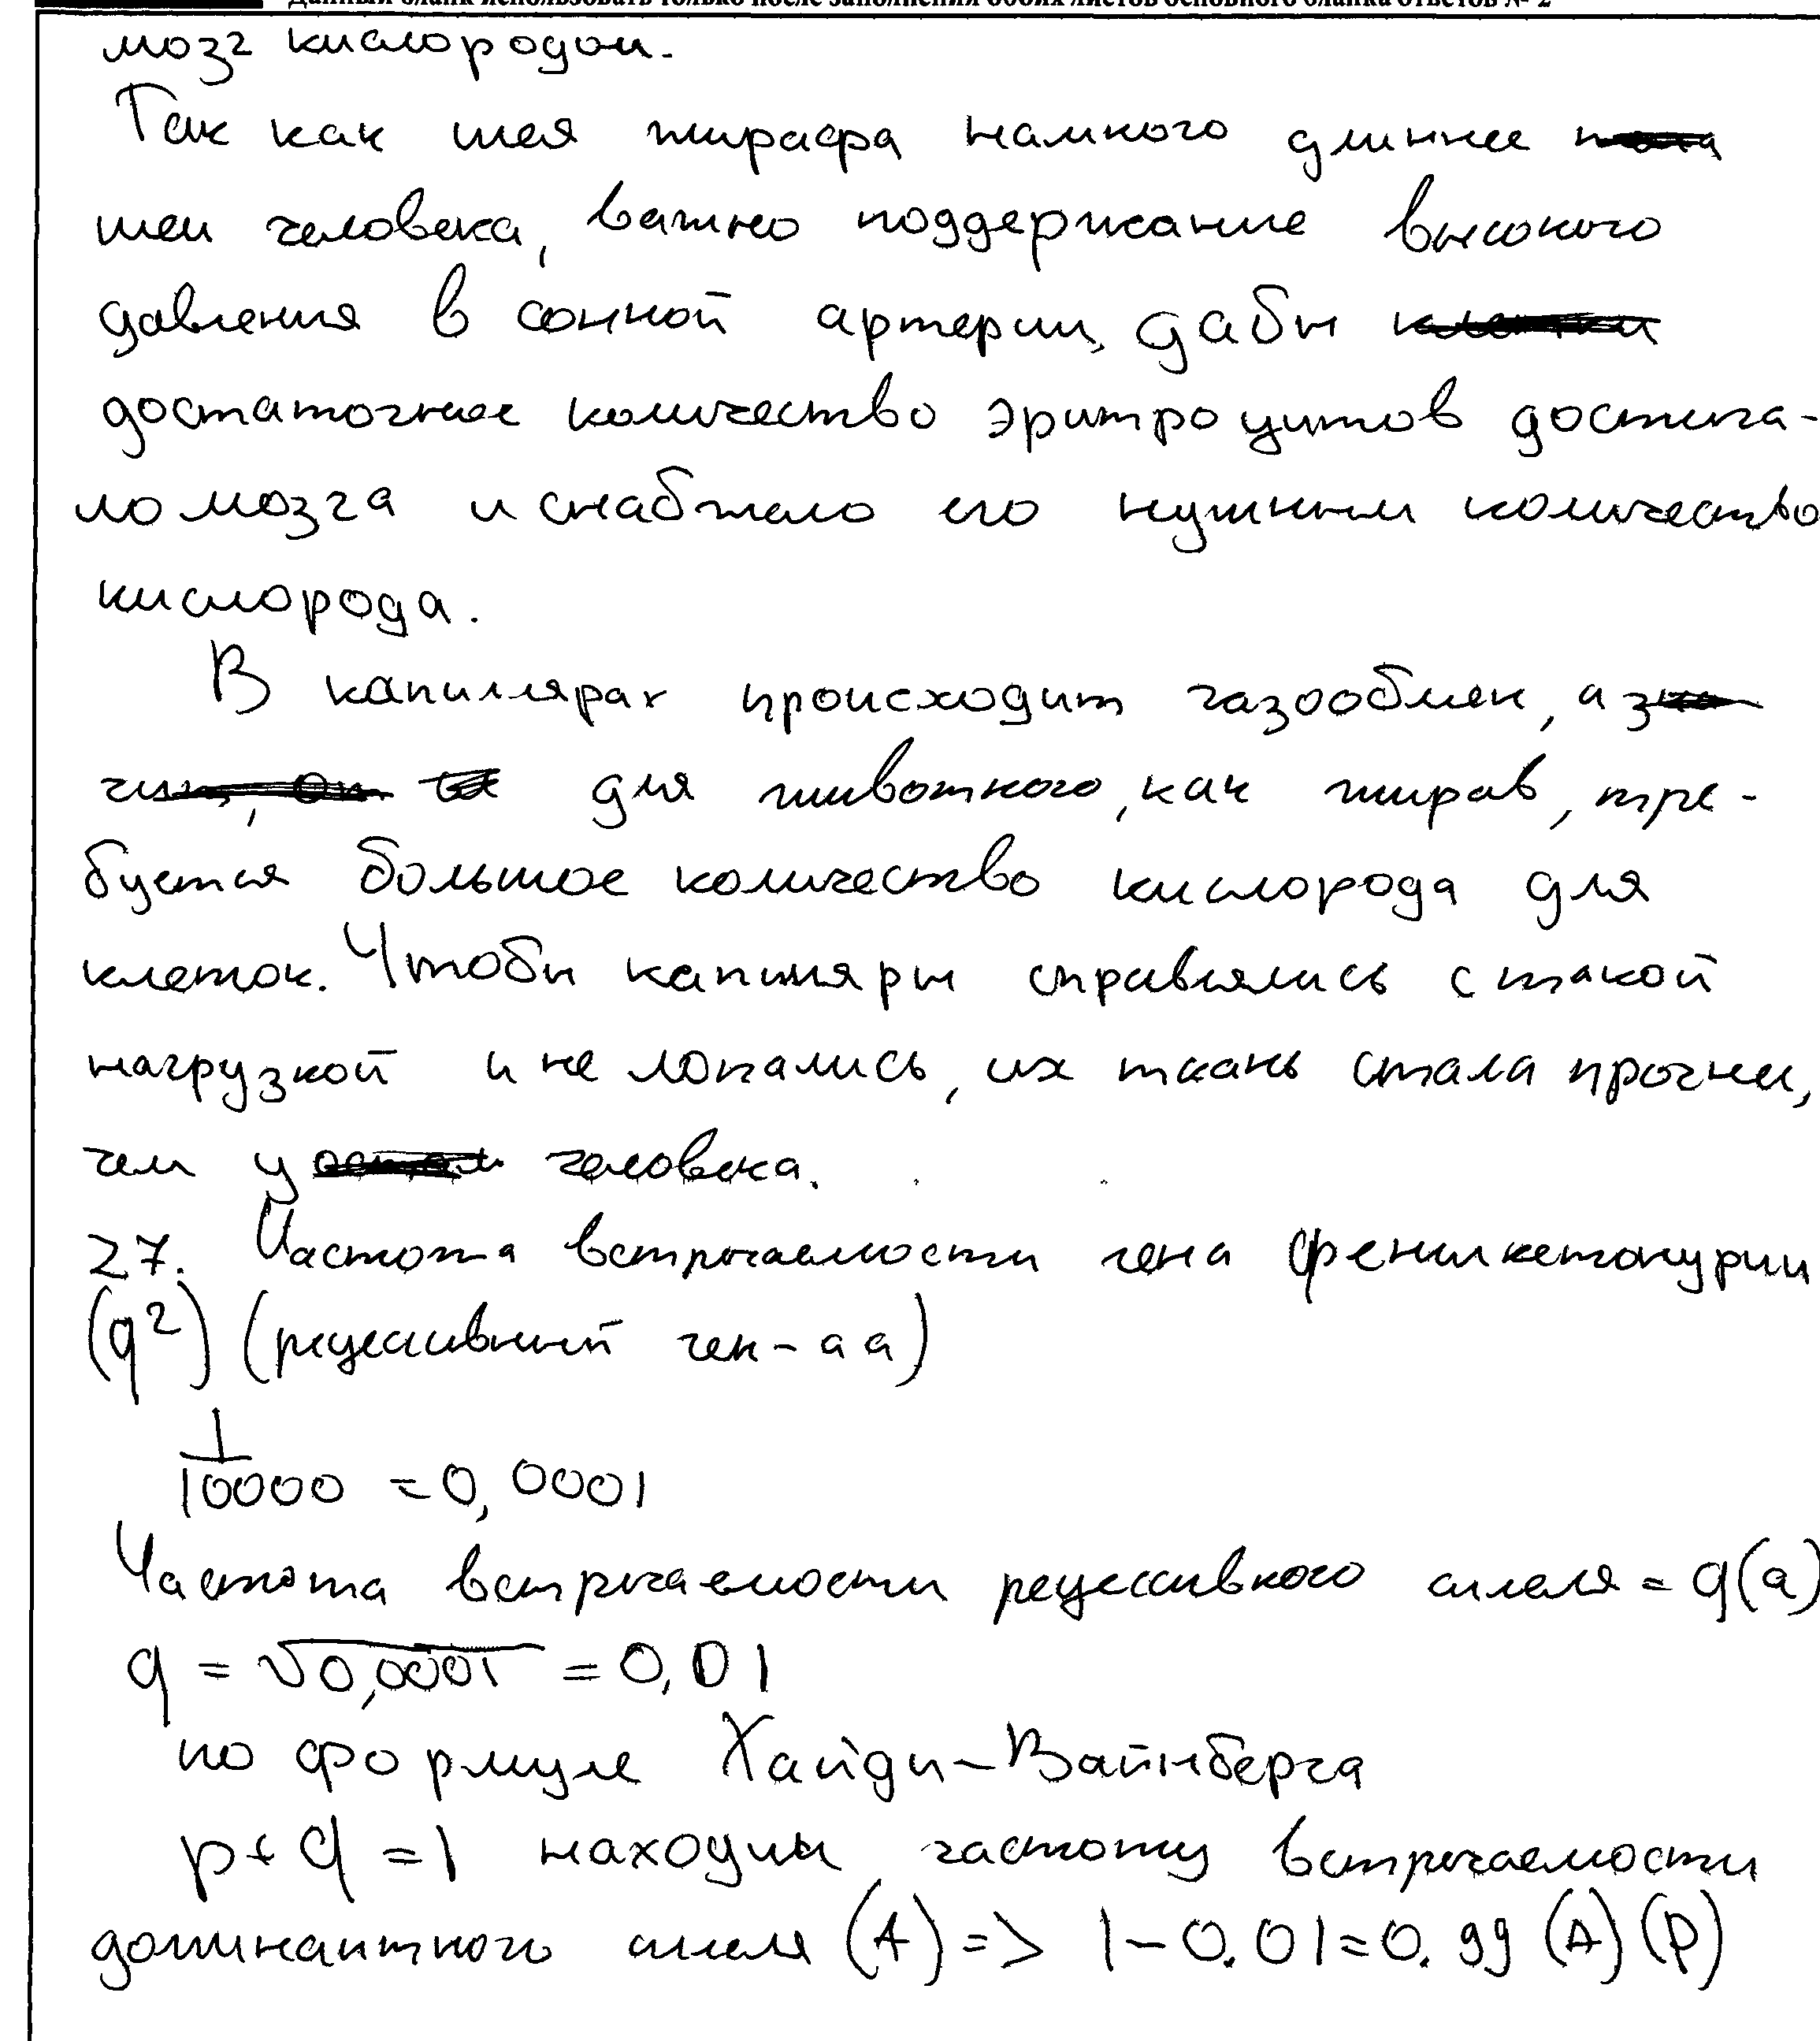 Данный бланк использовать только после заполнения обоих листов основного бланка ответов № 2
мозг кислородом.
Так как шея жирафа намного длиннее
шеи человека, важно поддержание высокого
давления в сонной артерии, дабы клетки
достаточное количество эритроцитов достига-
ло мозга и снабжало его нужным количество
кислорода.
В капиллярах происходит газообмен, а зна
чит, он для животного, как жирав, тре-
буется большое количество кислорода для
клеток. Чтобы капилляры справлялись с такой
нагрузкой и не лопались, их ткань стала прочни,
чем у человека.
27. Частота встречаемости гена фенилкетонурии
(q²) (рецессивный ген - аа)
1/10000 = 0,0001
Частота встречаемости рецессивного аллеля = q(a)
q = √0,0001 = 0,01
по формуле Хайди-Вайнберга
p+q=1 находим частоту встречаемости
доминантного аллеля (А) => 1-0.01=0.99 (А)(p)